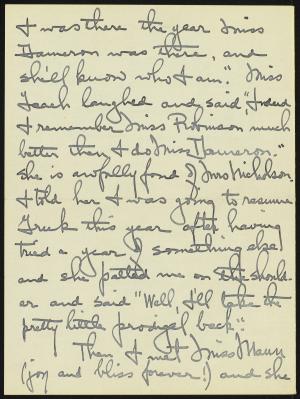 I was there the year Miss
Dameron was there, and
she'll know who I am." Miss
Leach laughed and said, "Indeed
I remember Miss Robinson much
better than I do Miss Dameron."
She is awfully fond of Mrs Nicholson.
I told her I was going to resume
Greek this year after having
tried a year of something else
and she patted me on the should-
er and said "Well, I'll take the
pretty little prodigal back."
Then I met Miss
(joy and bliss forever!) and she